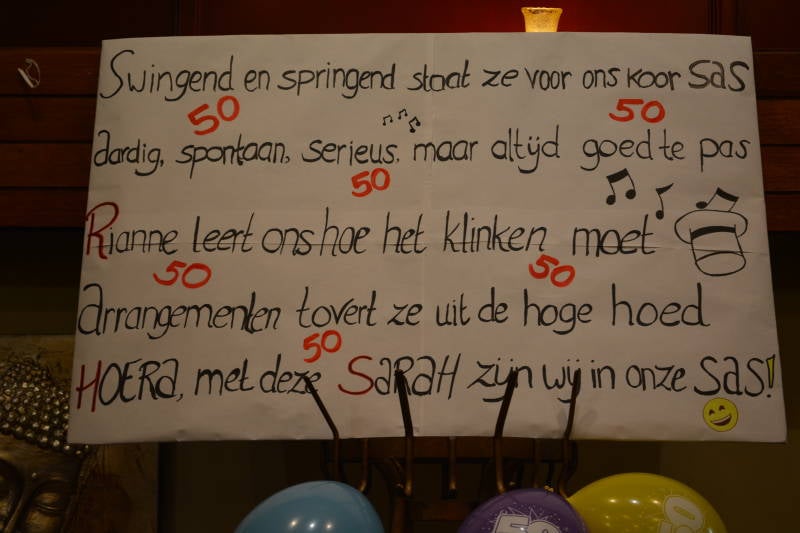 Swingend en springend staat ze voor ons koor SAS
50 50
Aardig, spontaan, serieus, maar altijd goed te pas
50
Rianne leert ons hoe het klinken moet
50 50
Arrangementen tovert ze uit de hoge hoed
50
HOERA, met deze SARAH zijn wij in onze SAS!
50 50